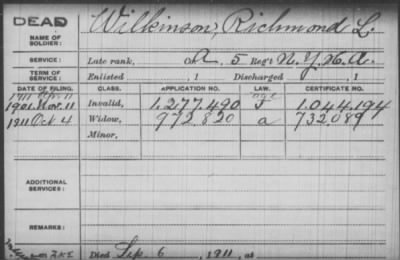 DEAD
Wilkinson, Richmond L.
NAME OF SOLDIER:
SERVICE: Late rank, Co. A, 5 Reg't N.Y.H.A.
TERM OF SERVICE: Enlisted , 1 Discharged , 1
DATE OF FILING. CLASS. APPLICATION NO. LAW. CERTIFICATE NO.
1901 Nov. 11 Invalid, 1.277.490 J 1.044.194
1911 Oct. 4 Widow, 972.820 a 732.089
Minor,
ADDITIONAL SERVICES:
REMARKS:
Died Sep. 6, 1911, at